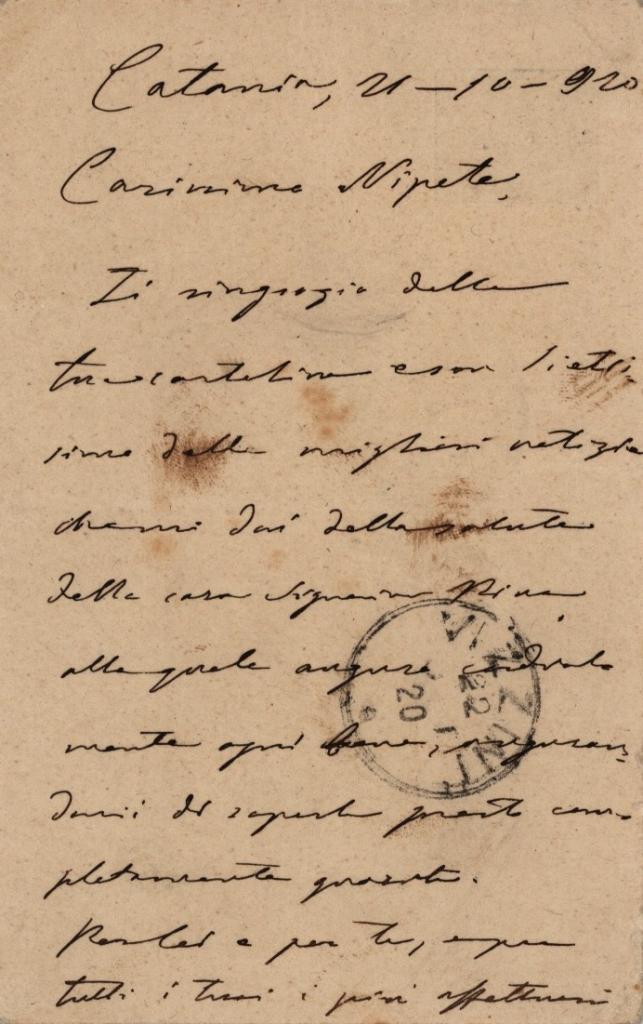 Catania, 21-10-920
Carissimo Nipote,
Ti ringrazio della
tua cartolina e son lietis-
simo delle migliori notizie
che mi dai della salute
della cara Signorina Rina
alla quale auguro cordial-
mente ogni bene, auguran-
domi di saperla presto com-
pletamente guarita.
Per lei e per te, e per
tutti i tuoi i più affettuosi
22
20